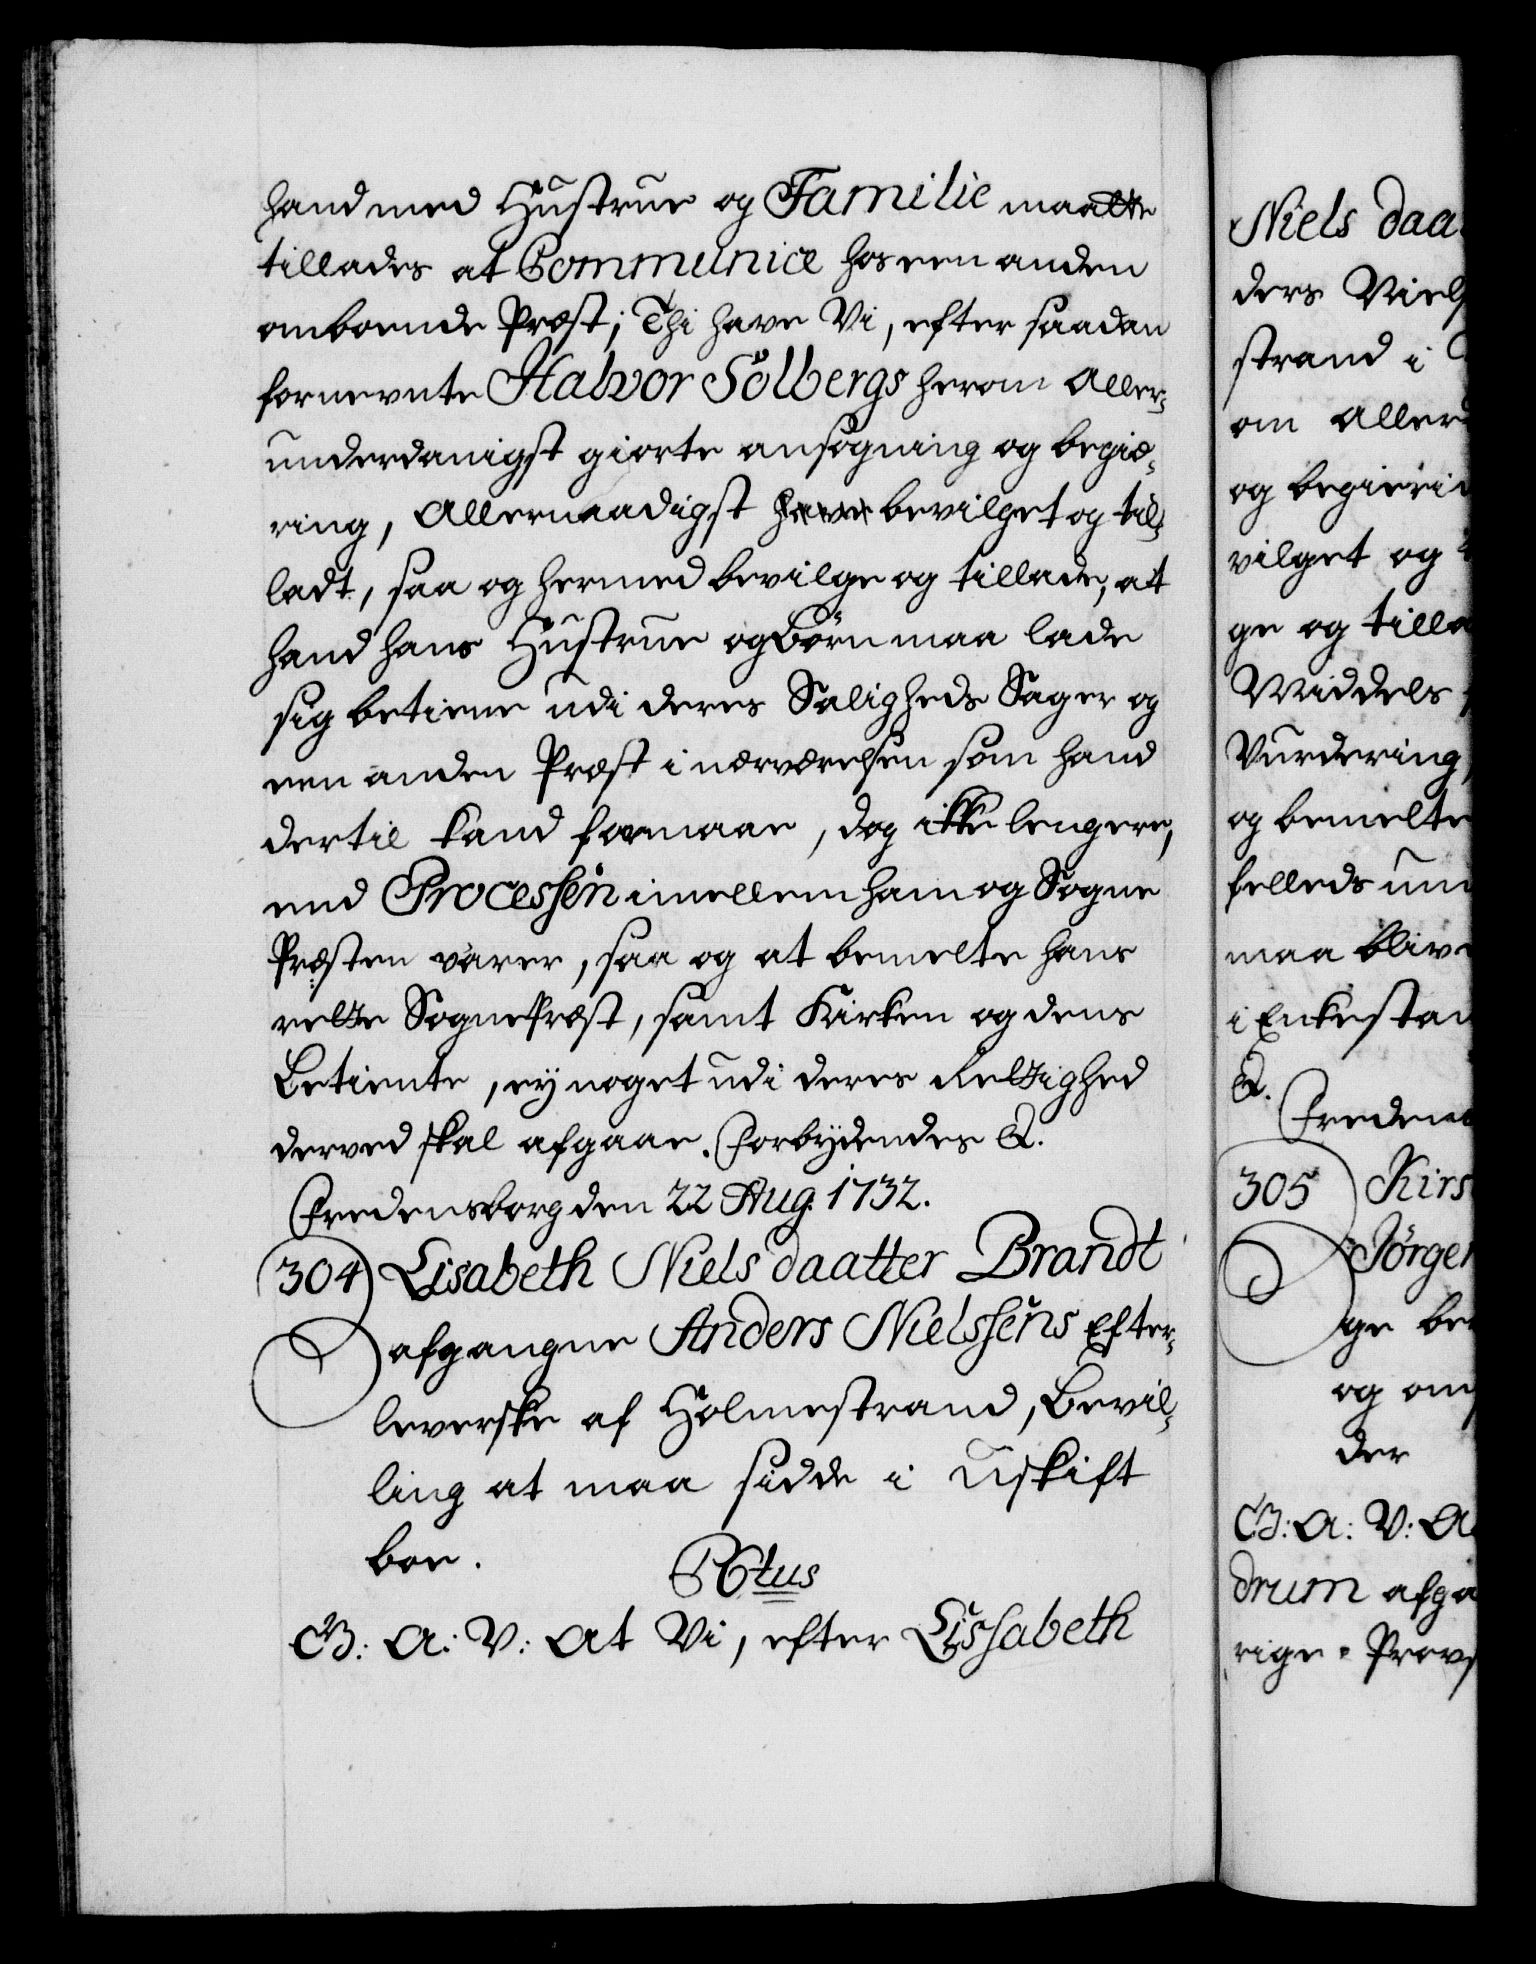 hand med Hustrue og Familie maatte
tillades at Communice hos een anden
omboende Præst; Thi have Vi, efter saadan
fornevnte Halvor Sölbergs herom Aller-
underdanigst giorte ansøgning og begiæ-
ring, Allernaadigst have bevilget og til-
ladt, saa og hermed bevilge og tillade, at
hand hans Hustrue og Börn maa lade
sig betiene udi deres Saligheds Sager og
een anden Præst i nærværelsen som hand
dertil kand formaae, dog ikke lengere,
end Processen imellem ham og Sogne
Præsten varer, saa og at bemelte hans
rette SognePræst, samt Kirken og dens
Betiente, ey noget udi deres Rettighed
derved skal afgaae. Forbydendes &.
Fredensborg den 22 Aug. 1732.
304 Lisabeth Niels daatter Brandt
afgangne Anders Nielssens Efter-
leverske af Holmestrand, Bevil-
ling at maa sidde i Uskift
boe.
G: A: V: At Vi, efter Lissabeth
Niels daa
ders Niels
strand i
om Aller
og begierin
vilget og
ge og tilla
Middels
Vurdering
og bemelte
felleds
maa blive
i Enkestan
&.
Fredens
305 Kirs
Jörgen
ge be
og om
der
G: A: V: A
drum afga
rige Provs